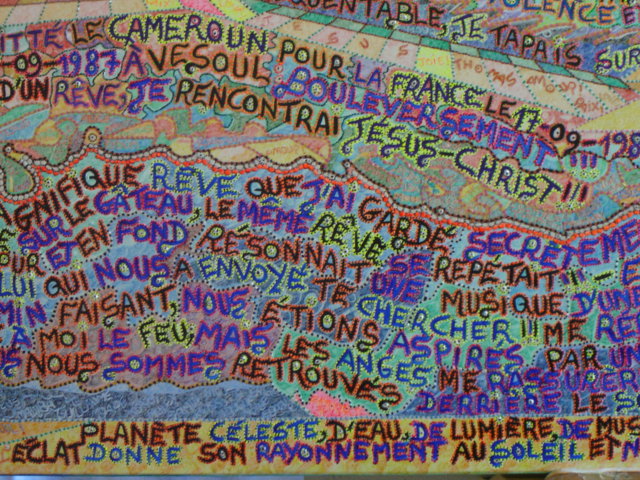 QUENTABLE, JE TAPAIS SUR
LE CAMEROUN POUR LA FRANCE LE 17-09-198
-09-1987 À VESOUL. BOULEVERSEMENT !!!
D'UN RÊVE, JE RENCONTRAI JÉSUS-CHRIST !!!
MAGNIFIQUE RÊVE QUE J'AI GARDÉ SECRÈTEME
SUR LE GÂTEAU, LE MÊME RÊVE SE RÉPÉTAIT !
ET EN FOND RÉSONNAIT UNE MUSIQUE D'UN
LUI QUI NOUS A ENVOYÉ TE CHERCHER !!! ME
MIN FAISANT, NOUS ÉTIONS ASPIRÉS PAR UN
À MOI LE FEU, MAIS LES ANGES ME RASSURÈR
NOUS SOMMES RETROUVÉS DERRIÈRE LE
PLANÈTE CÉLESTE, D'EAU, DE LUMIÈRE, DE MUS
ÉCLAT DONNE SON RAYONNEMENT AU SOLEIL ET